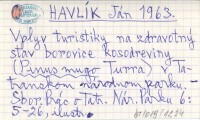 HAVLÍK Ján 1963.
Vplyv turistiky na zdravotný
stav borovice kosodreviny
(Pinus mugo Turra) v Ta-
transkom národnom parku.-
Sbor. Prác o Tatr. Nár. Parku 6:
5-26, ilustr.